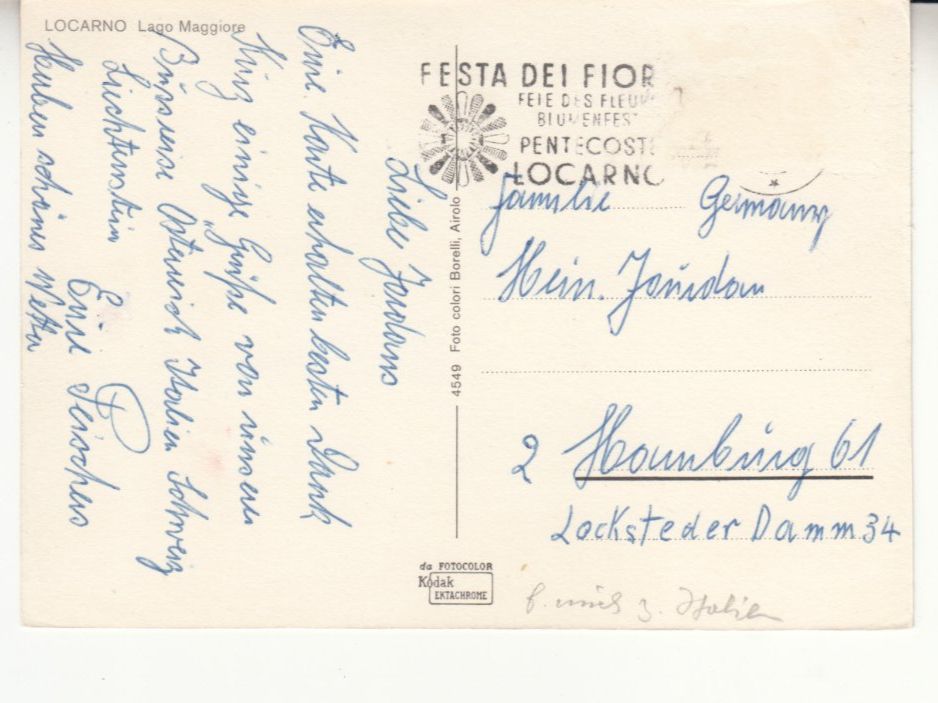 LOCARNO Lago Maggiore
Liebe Jordans
Eure Karte erhalten besten Dank
Kurz einige Grüße von unserer
Busreise Österreich Italien Schweiz
Liechtenstein
Haben schönes Wetter
Eure
4549 Foto colori Borelli, Airolo
FESTA DEI FIOR
BLUMENFEST
PENTECOSTE
LOCARNO
Familie Germany
Hein. Jourdan
2 Hamburg 61
Locksteder Damm 34
da FOTOCOLOR
Kodak
EKTACHROME